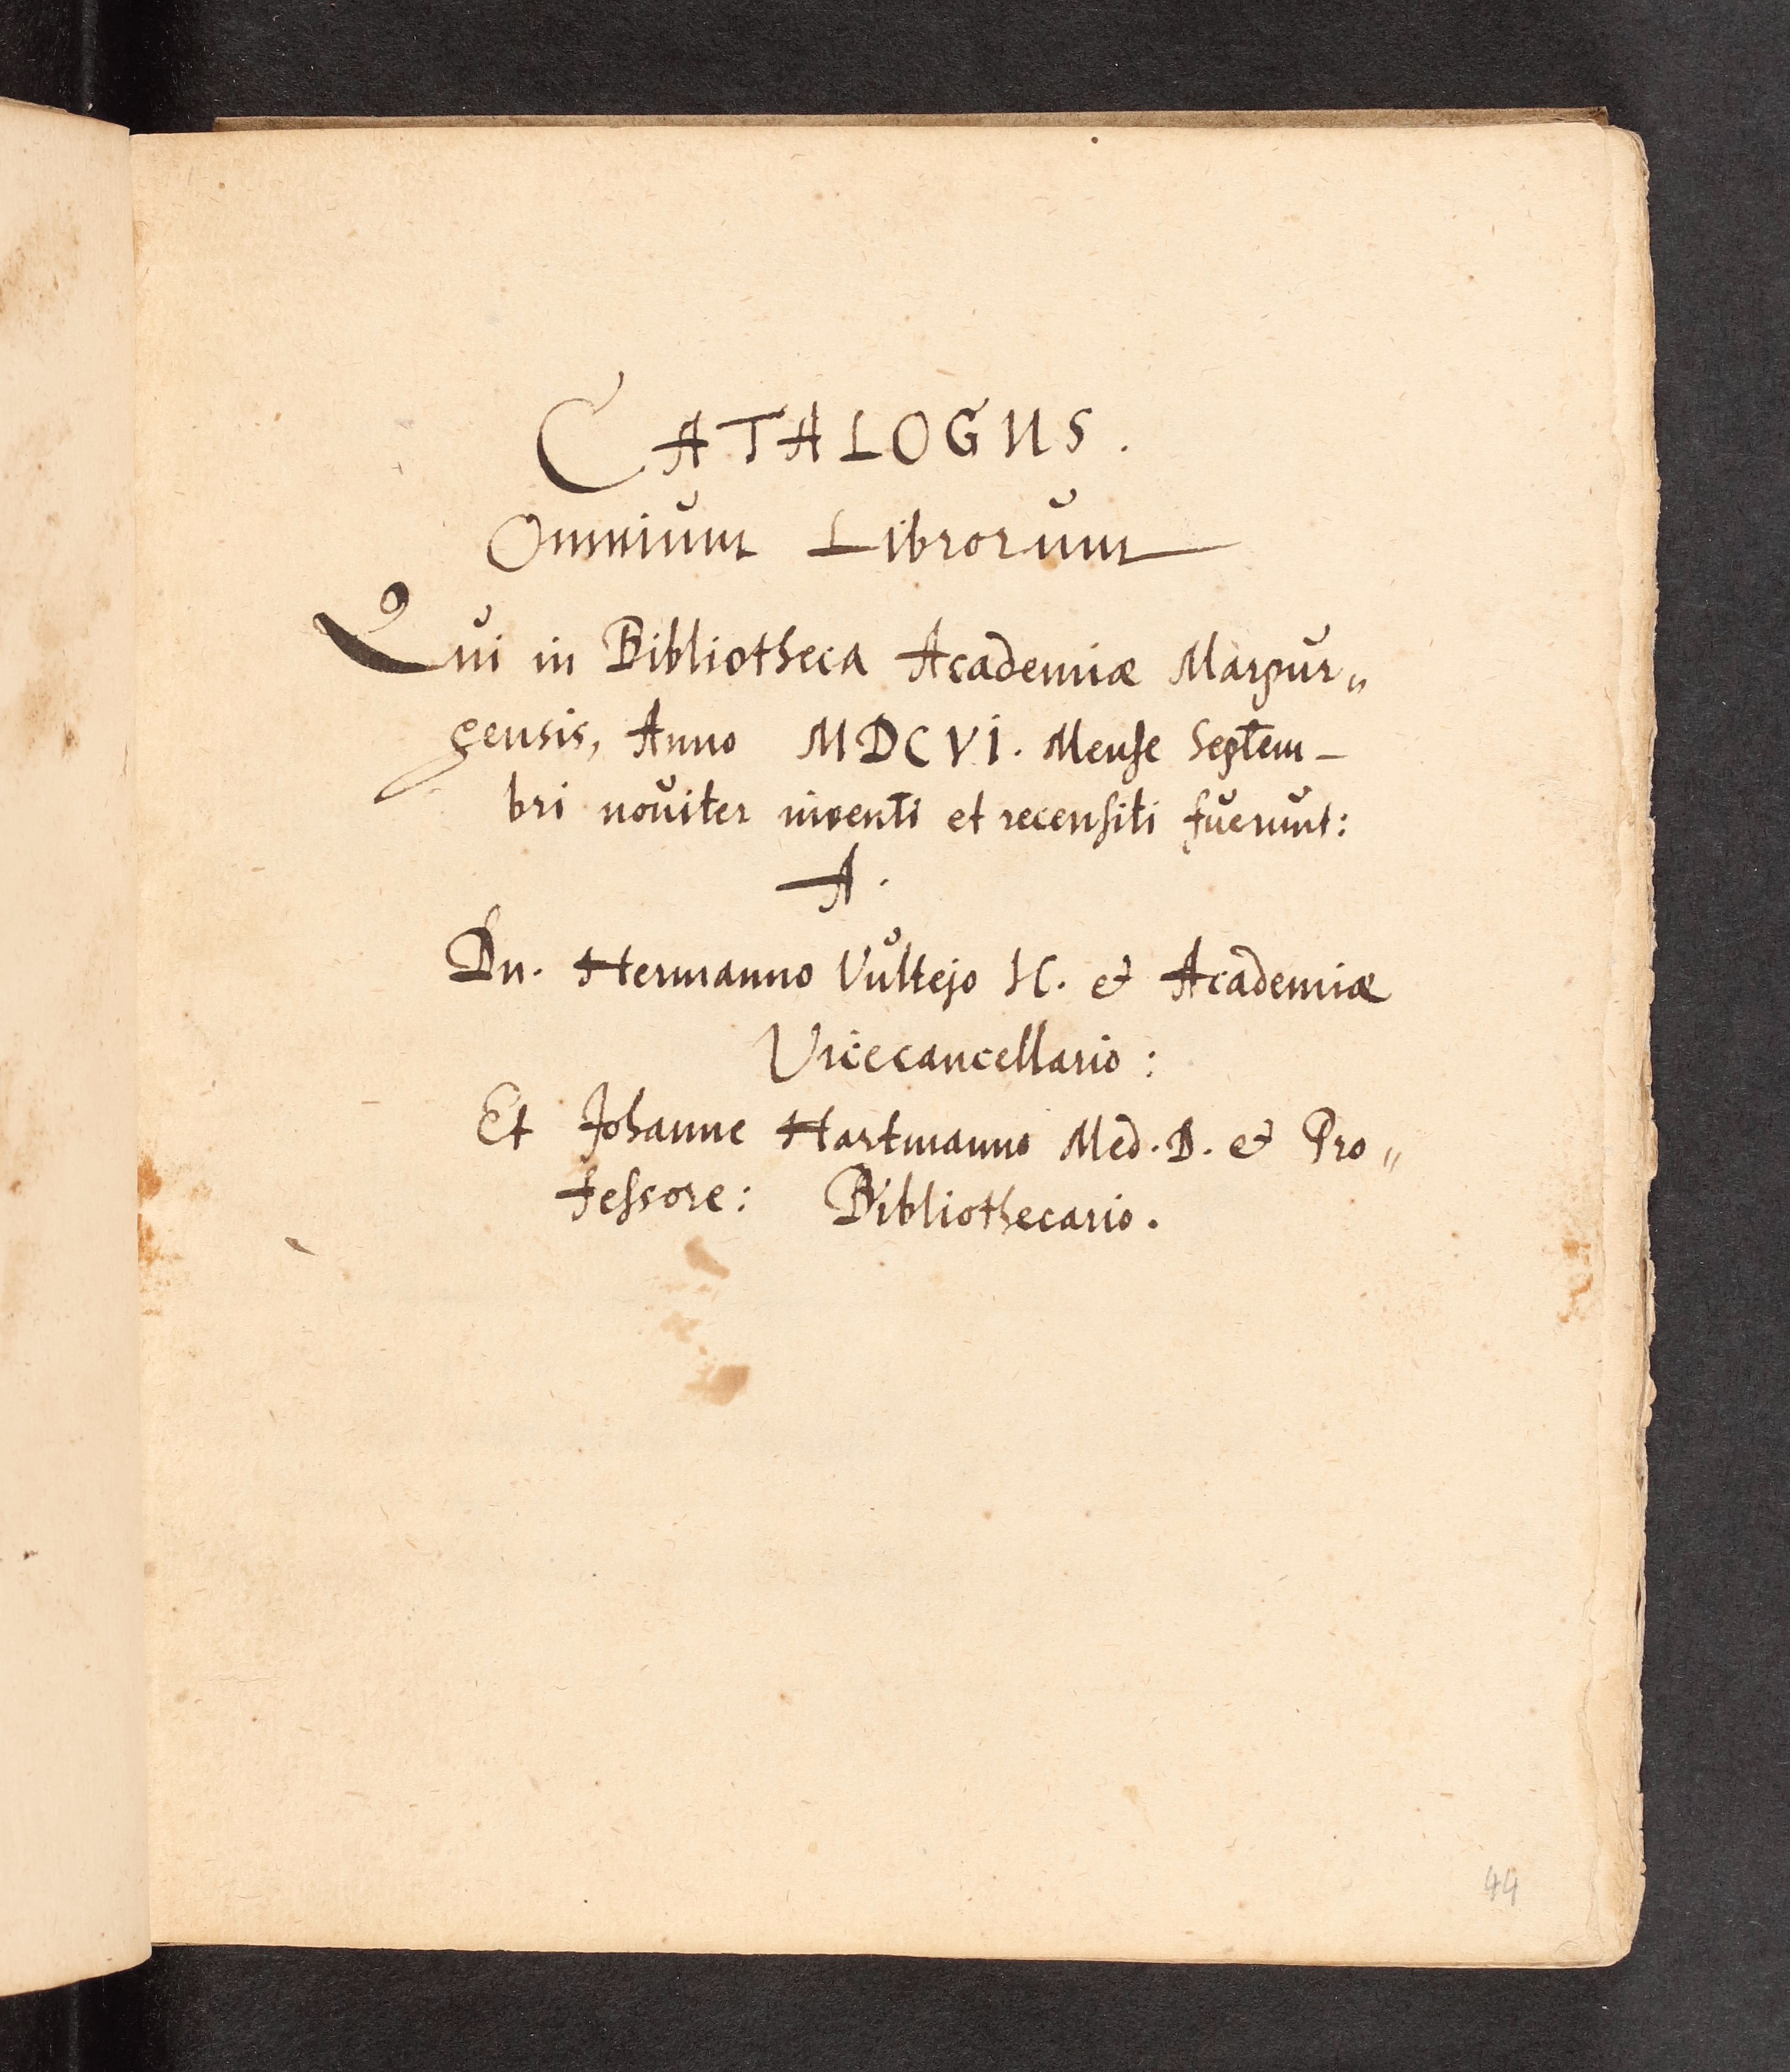 CATALOGUS.
Omnium Librorum
Qui in Bibliotheca Academiæ Marpur„
gensis, Anno MDCVI. Mense Septem-
bri noviter inventi et recensiti fuerunt:
A.
Dn. Hermanno Vultejo IC. & Academiæ
Vicecancellario:
Et Johanne Hartmanno Med. D. & Pro„
fessore: Bibliothecario.
44